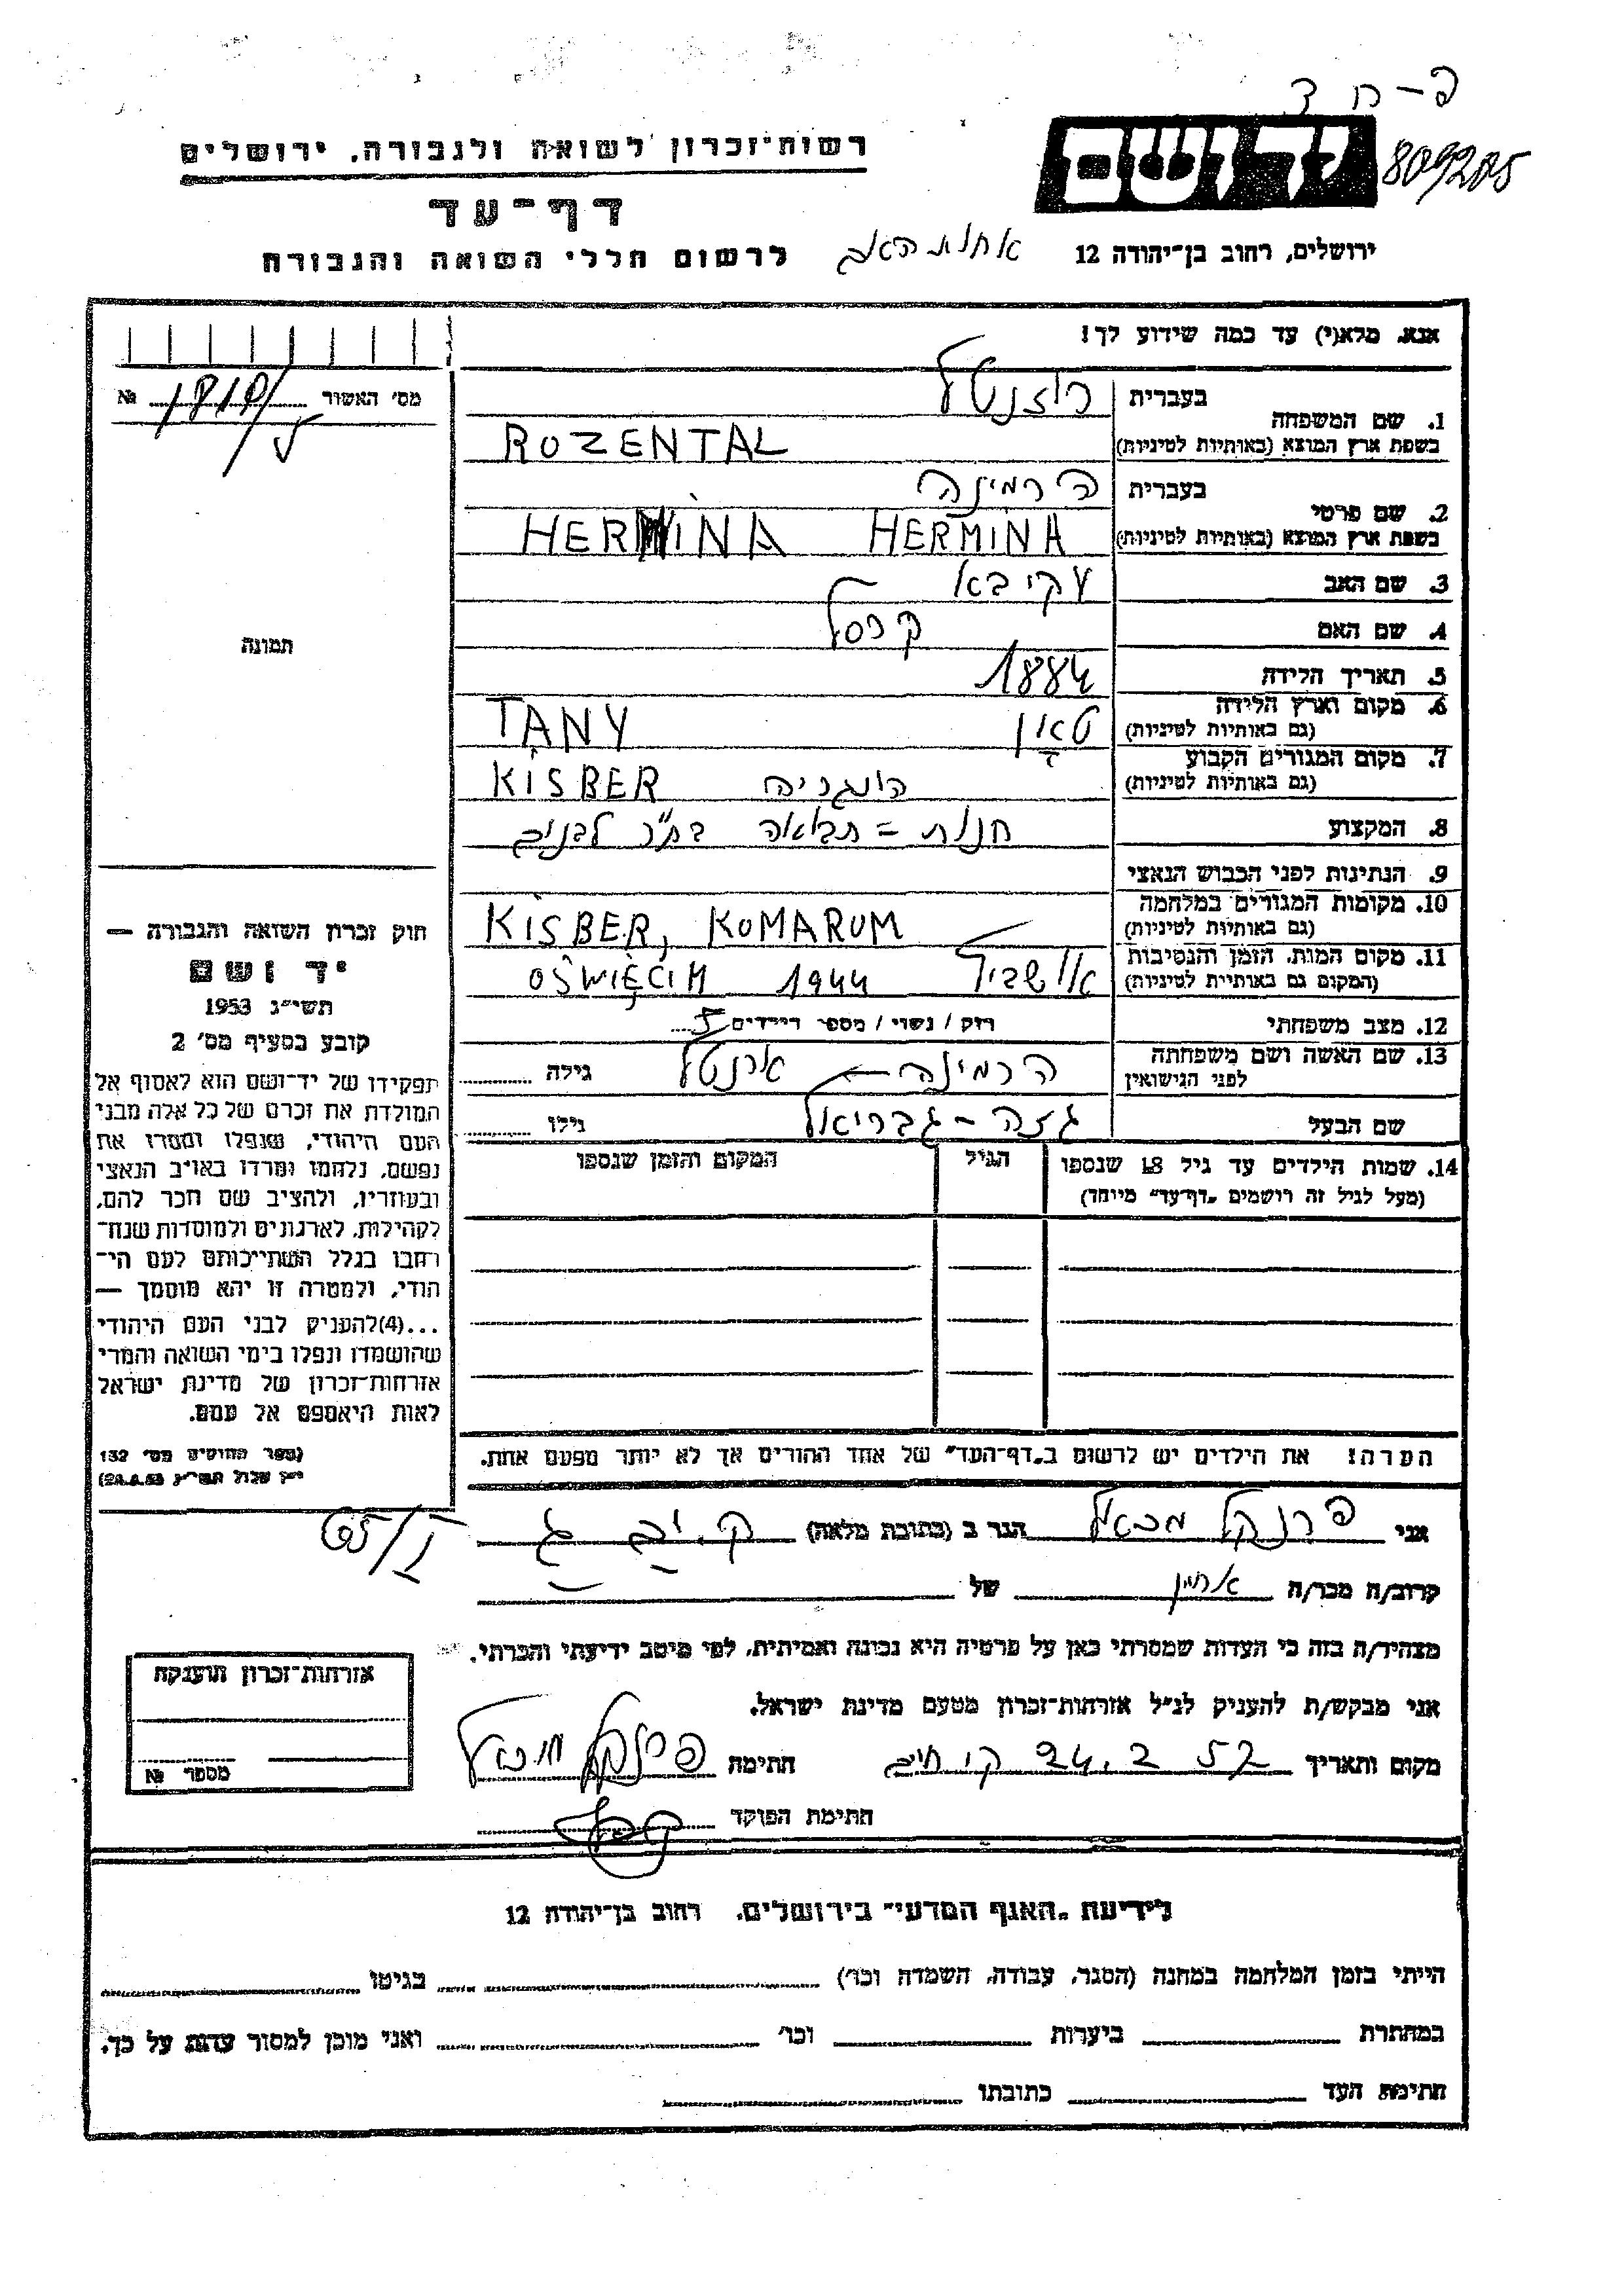 פ-ח ד
רשות־זכרון לשואה ולגבורה, ירושלים
יד ושם
809205
דף־עד
ירושלים, רחוב בן־יהודה 12
אחות האב
לרשום חללי השואה והגבורה
אנא, מלא(י) עד כמה שידוע לך!
מס' האשור № 1818/
1. שם המשפחה בעברית רוזנטל
בשפת ארץ המוצא (באותיות לטיניות) ROZENTAL
2. שם פרטי בעברית הרמינה
בשפת ארץ המוצא (באותיות לטיניות) HERMINA HERMINA
3. שם האב עקיבא
4. שם האם
תמונה
5. תאריך הלידה 1884
6. מקום וארץ הלידה TANY
(גם באותיות לטיניות)
7. מקום המגורים הקבוע הונגריה KISBER
(גם באותיות לטיניות)
8. המקצוע חנות = תבואה
9. הנתינות לפני הכבוש הנאצי
10. מקומות המגורים במלחמה KISBER, KOMARUM
(גם באותיות לטיניות)
11. מקום המות, הזמן והנסיבות 1944 OŚWIĘCIM
(המקום גם באותיות לטיניות)
12. מצב משפחתי רוק / נשוי / מספר הילדים 5
13. שם האשה ושם משפחתה הרמינה גילה
לפני הנישואין
שם הבעל גזה - גבריאל גילו
14. שמות הילדים עד גיל 18 שנספו הגיל המקום והזמן שנספו
(מעל לגיל זה רושמים „דף־עד" מיוחד)
חוק זכרון השואה והגבורה —
יד ושם
תשי״ג 1953
קובע בסעיף מס' 2
תפקידו של יד־ושם הוא לאסוף אל
המולדת את זכרם של כל אלה מבני
העם היהודי, שנפלו ומסרו את
נפשם, נלחמו ומרדו באויב הנאצי
ובעוזריו, ולהציב שם וזכר להם,
לקהילות, לארגונים ולמוסדות שנח־
רבו בגלל השתייכותם לעם הי־
הודי, ולמטרה זו יהא מוסמך —
...(4)להעניק לבני העם היהודי
שהושמדו ונפלו בימי השואה והמרי
אזרחות־זכרון של מדינת ישראל
לאות היאספם אל עמם.
(ספר החוקים מס' 132
הערה! את הילדים יש לרשום ב„דף־העד" של אחד ההורים אך לא יותר מפעם אחת.
אני פרנקל מכאל הגר ב (כתובת מלאה)
קרוב/ה מכר/ה אחיין של
מצהיר/ה בזה כי העדות שמסרתי כאן על פרטיה היא נכונה ואמיתית, לפי מיטב ידיעתי והכרתי.
אני מבקש/ת להעניק לנ״ל אזרחות־זכרון מטעם מדינת ישראל.
מקום ותאריך חתימה פרנקל מכאל
חתימת הפוקד
אזרחות־זכרון הוענקה
מספר №
לידיעת „האגף המדעי" בירושלים, רחוב בן־יהודה 12
הייתי בזמן המלחמה במחנה (הסגר, עבודה, השמדה וכו') בגיטו
במחתרת ביערות וכו' ואני מוכן למסור עדות על כך.
חתימת העד כתובתו